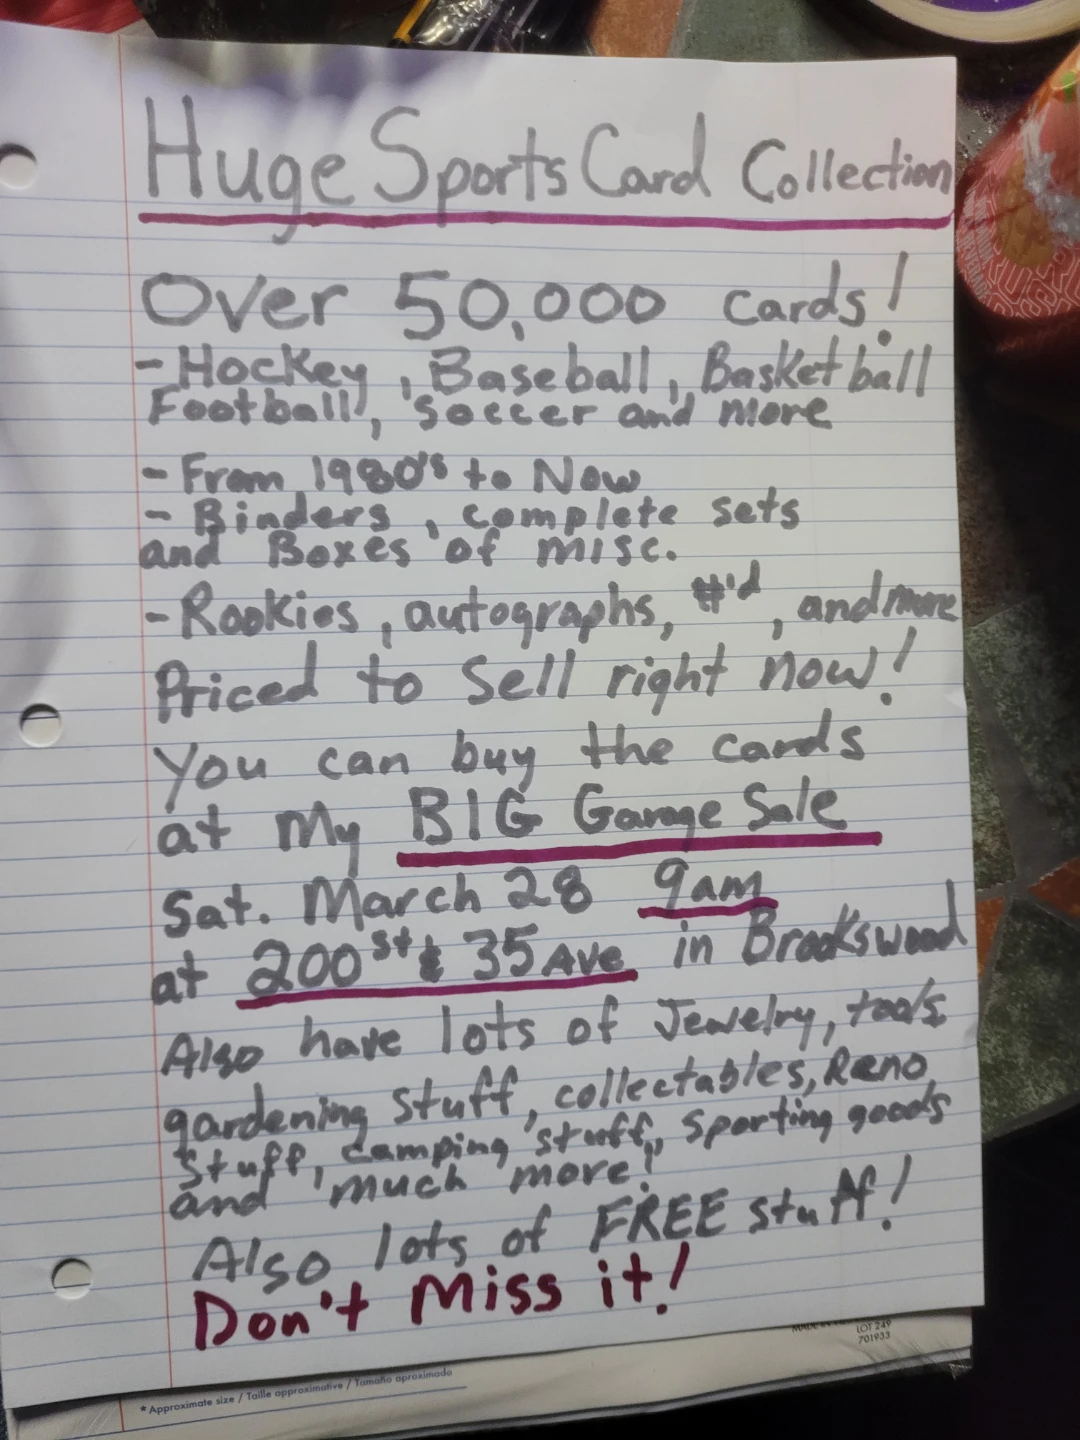 Huge Sports Card Collection
Over 50,000 cards!
- Hockey, Baseball, Basketball
Football, soccer and more
- From 1980's to Now
- Binders, complete sets
and Boxes of misc.
- Rookies, autographs, #'d, and more
Priced to sell right now!
You can buy the cards
at My BIG Garage Sale
Sat. March 28 9am
at 200 st & 35 Ave in Brookswood
Also have lots of Jewelry, tools
gardening stuff, collectables, Reno
stuff, camping stuff, sporting goods
and much more!
Also lots of FREE stuff!
Don't Miss it!
LOT 249
701933
* Approximate size / Taille approximative / Tamaño aproximado